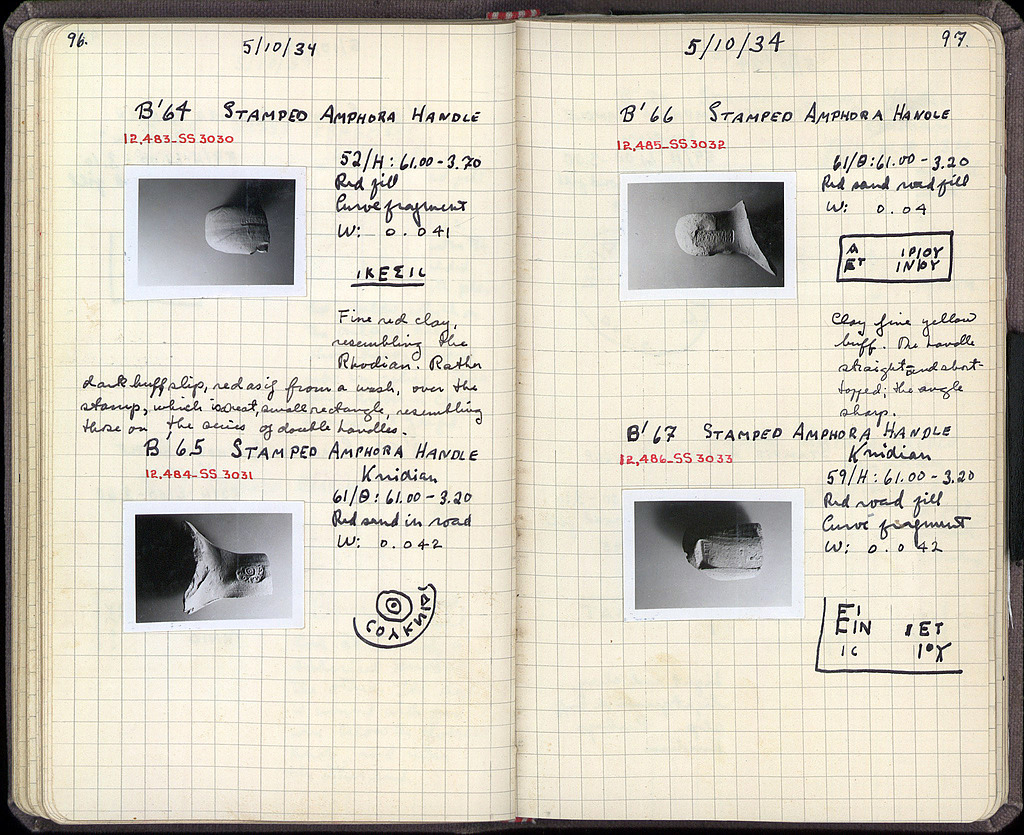 96.
5/10/34
B'64 STAMPED AMPHORA HANDLE
12,483-SS 3030
52/H: 61.00-3.70
Red fill
Curve fragment
W: 0.041
ΙΚΕΣΙC
Fine red clay,
resembling the
Rhodian. Rather
dark buff slip, red as if from a wash, over the
stamp, which is neat, small rectangle, resembling
those on the series of double handles.
B'65 STAMPED AMPHORA HANDLE
12,484-SS 3031
Knidian
61/Θ: 61.00-3.20
Red sand in road
W: 0.042
5/10/34
97.
B'66 STAMPED AMPHORA HANDLE
12,485-SS 3032
61/Θ: 61.00-3.20
Red sand road fill
W: 0.04
Α ΙΡΙΟΥ
ΕΤ ΙΝΙΟΥ
Clay fine yellow
buff. The handle
straight and short-
topped; the angle
sharp.
B'67 STAMPED AMPHORA HANDLE
12,486-SS 3033
Knidian
59/H: 61.00-3.20
Red road fill
Curve fragment
W: 0.042
ΕΙ
ΕΙΝ ΙΕΤ
ΙC ΙΟΥ